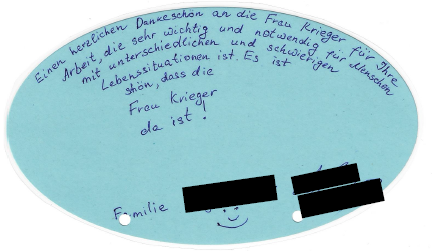 Einen herzlichen Dankeschön an die Frau Krieger für Ihre
Arbeit, die sehr wichtig und notwendig für Menschen
mit unterschiedlichen und schwierigen
Lebenssituationen ist. Es ist
shön, dass die
Frau Krieger
da ist!
Familie